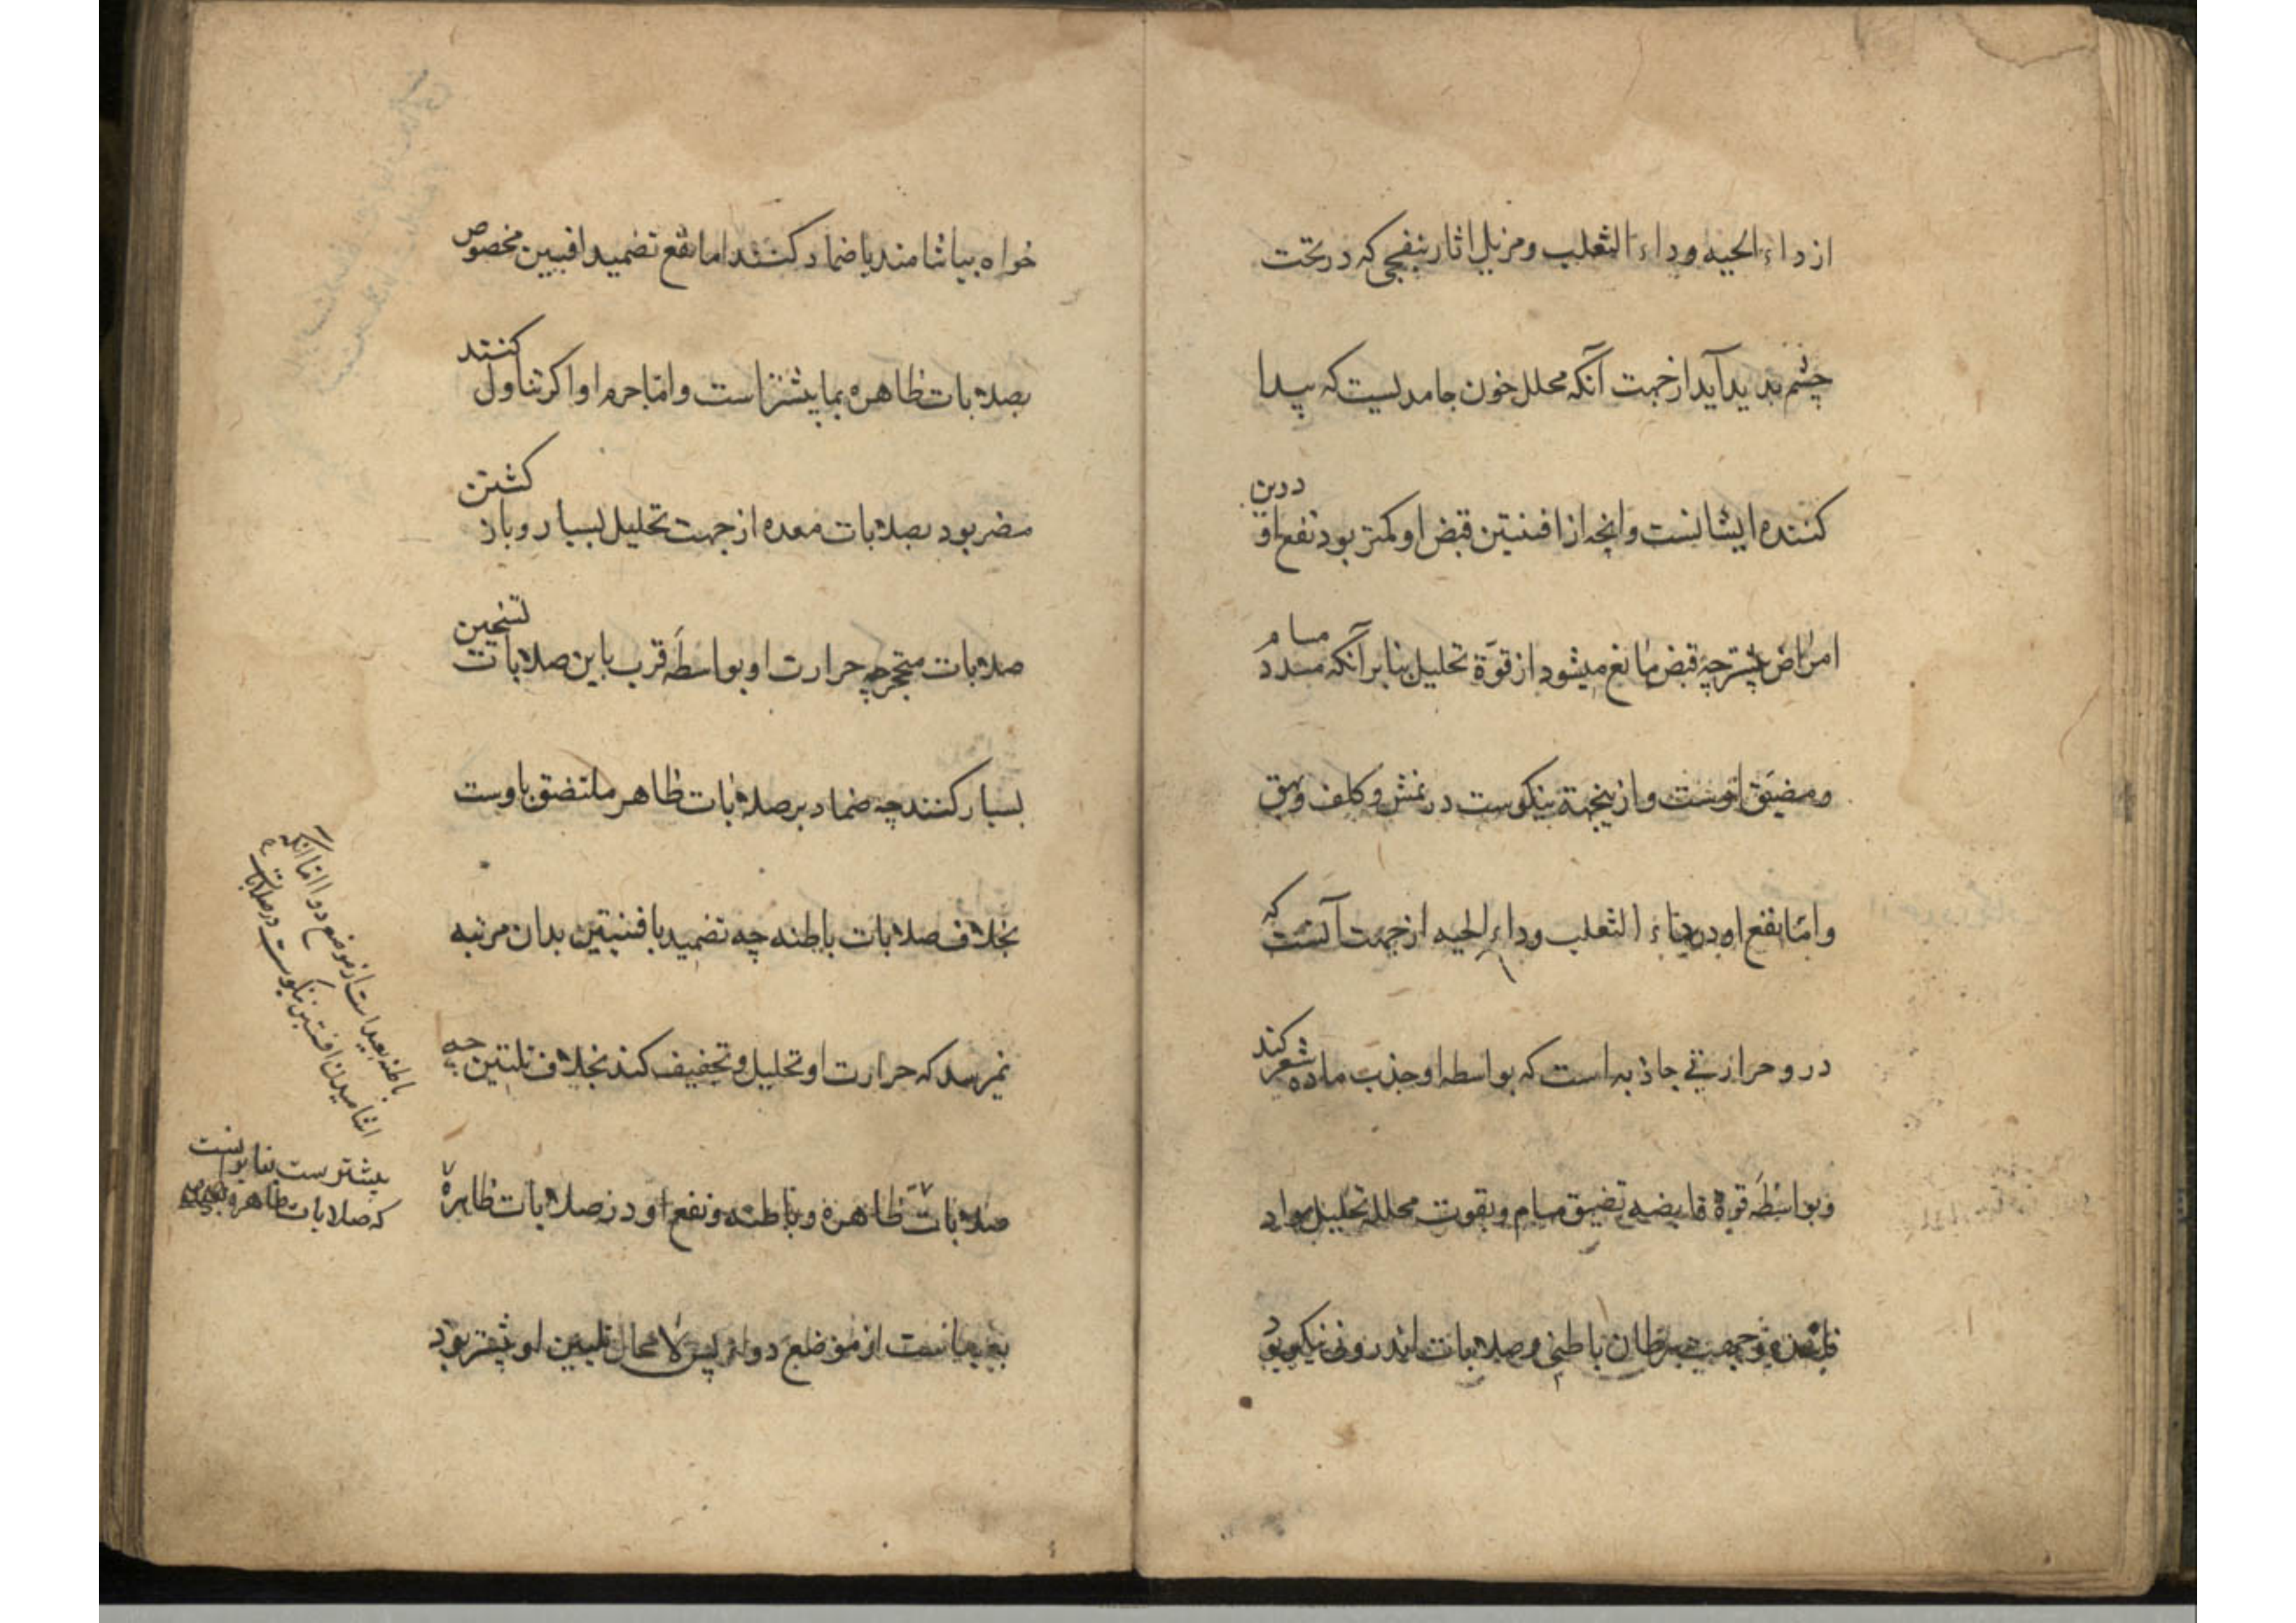 از داء الحیه و داء الثعلب و مزیل اثار بنفجی که در تحت
چشم پدید آید از جهت آنکه محلل خون جامدیست که پیدا
کننده ایشانست و انچه از افسنتین قبض او کمتر بود نفع او درین
امراض بیشتر چه قبض مانع میشود از قوّة تحلیل بنابر آنکه مسدد مسام
و مضیّق اوست و ازینجهة نیکوست در نمش و کلف و بهق
و امّا نفع او در داء الثعلب و داء الحیه از جهت آنست که
درو حرارتی جاذبه است که بواسطه او جذب ماده شعر کند
و بواسطهٔ قوة قابضه تضیق مسام و بقوت محلله تحلیل مواد
سرطان باطنی و صلابات اندرونی نیکو بود
خواه بیاشامند یا ضماد کنند اما نفع تضمید افسنتین مخصوص
بصلابات ظاهره بما بیشتر است و امّا جرم او اگر تناول کنند
مضر بود بصلابات معده از جهت تحلیل بسیار و باز کشتن
صلابات متحجر چه حرارت او بواسطهٔ قرب باین صلابات تسخین
بسیار کنند چه ضماد بر صلابات ظاهر ملتصق باوست
بخلاف صلابات باطنه چه تضمید بافسنتین بدان مرتبه
نمیرسد که حرارت او تحلیل و تجفیف کند بخلاف تلیین چه
صلابات ظاهرة و باطنه و نفع او در صلابات ظاهرة
از موضع دوا پس لا محال تلیین او بیشتر بود
باطنه بعید است از موضع دوا اما انکه
اشامیدن افسنتین نیکوست در صلابات
بیشترست بنا برانست
که صلابات ظاهره